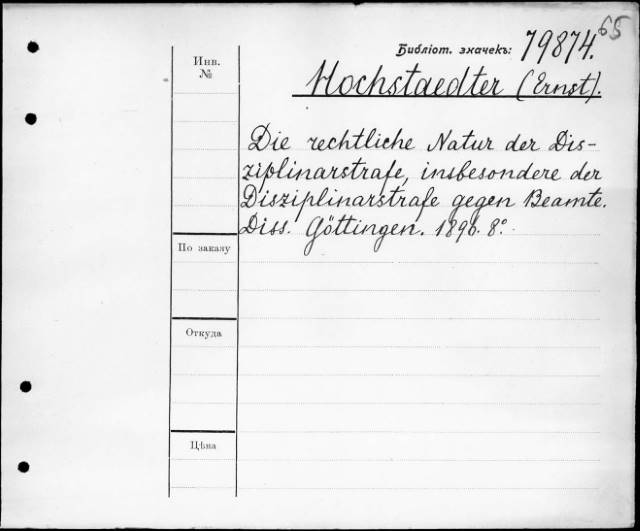 65
Библіот. значекъ: 79874.
Инв.
№
Hochstaedter (Ernst).
Die rechtliche Natur der Dis-
ziplinarstrafe, insbesondere der
Disziplinarstrafe gegen Beamte.
Diss. Göttingen. 1896. 8°.
По заказу
Откуда
Цѣна